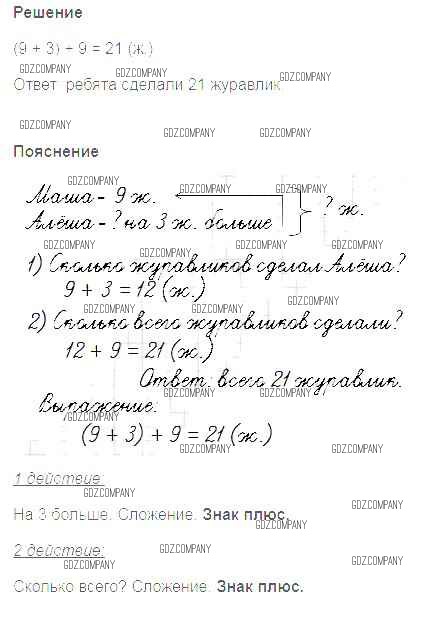 Решение
(9 + 3) + 9 = 21 (ж.)
GDZCOMPANY GDZCOMPANY GDZCOMPANY
Ответ ребята сделали 21 журавлик
GDZCOMPANY GDZCOMPANY GDZCOMPANY
Пояснение
GDZCOMPANY GDZCOMPANY GDZCOMPANY
Маша - 9 ж.
Алёша - ? на 3 ж. больше
? ж.
GDZCOMPANY GDZCOMPANY GDZCOMPANY
1) Сколько журавликов сделал Алёша?
9 + 3 = 12 (ж.)
GDZCOMPANY GDZCOMPANY GDZCOMPANY
2) Сколько всего журавликов сделали?
12 + 9 = 21 (ж.)
GDZCOMPANY GDZCOMPANY GDZCOMPANY
Ответ: всего 21 журавлик.
GDZCOMPANY GDZCOMPANY
Выражение:
GDZCOMPANY
(9 + 3) + 9 = 21 (ж.)
GDZCOMPANY GDZCOMPANY
1 действие:
GDZCOMPANY GDZCOMPANY
На 3 больше. Сложение. Знак плюс.
GDZCOMPANY
2 действие:
GDZCOMPANY GDZCOMPANY GDZCOMPANY
Сколько всего? Сложение. Знак плюс.